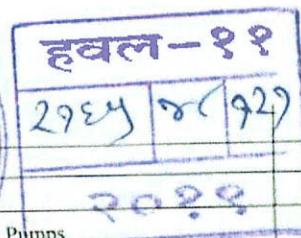 हवल-११
२१६५ | ४८ | १२१
२०११
Pumps